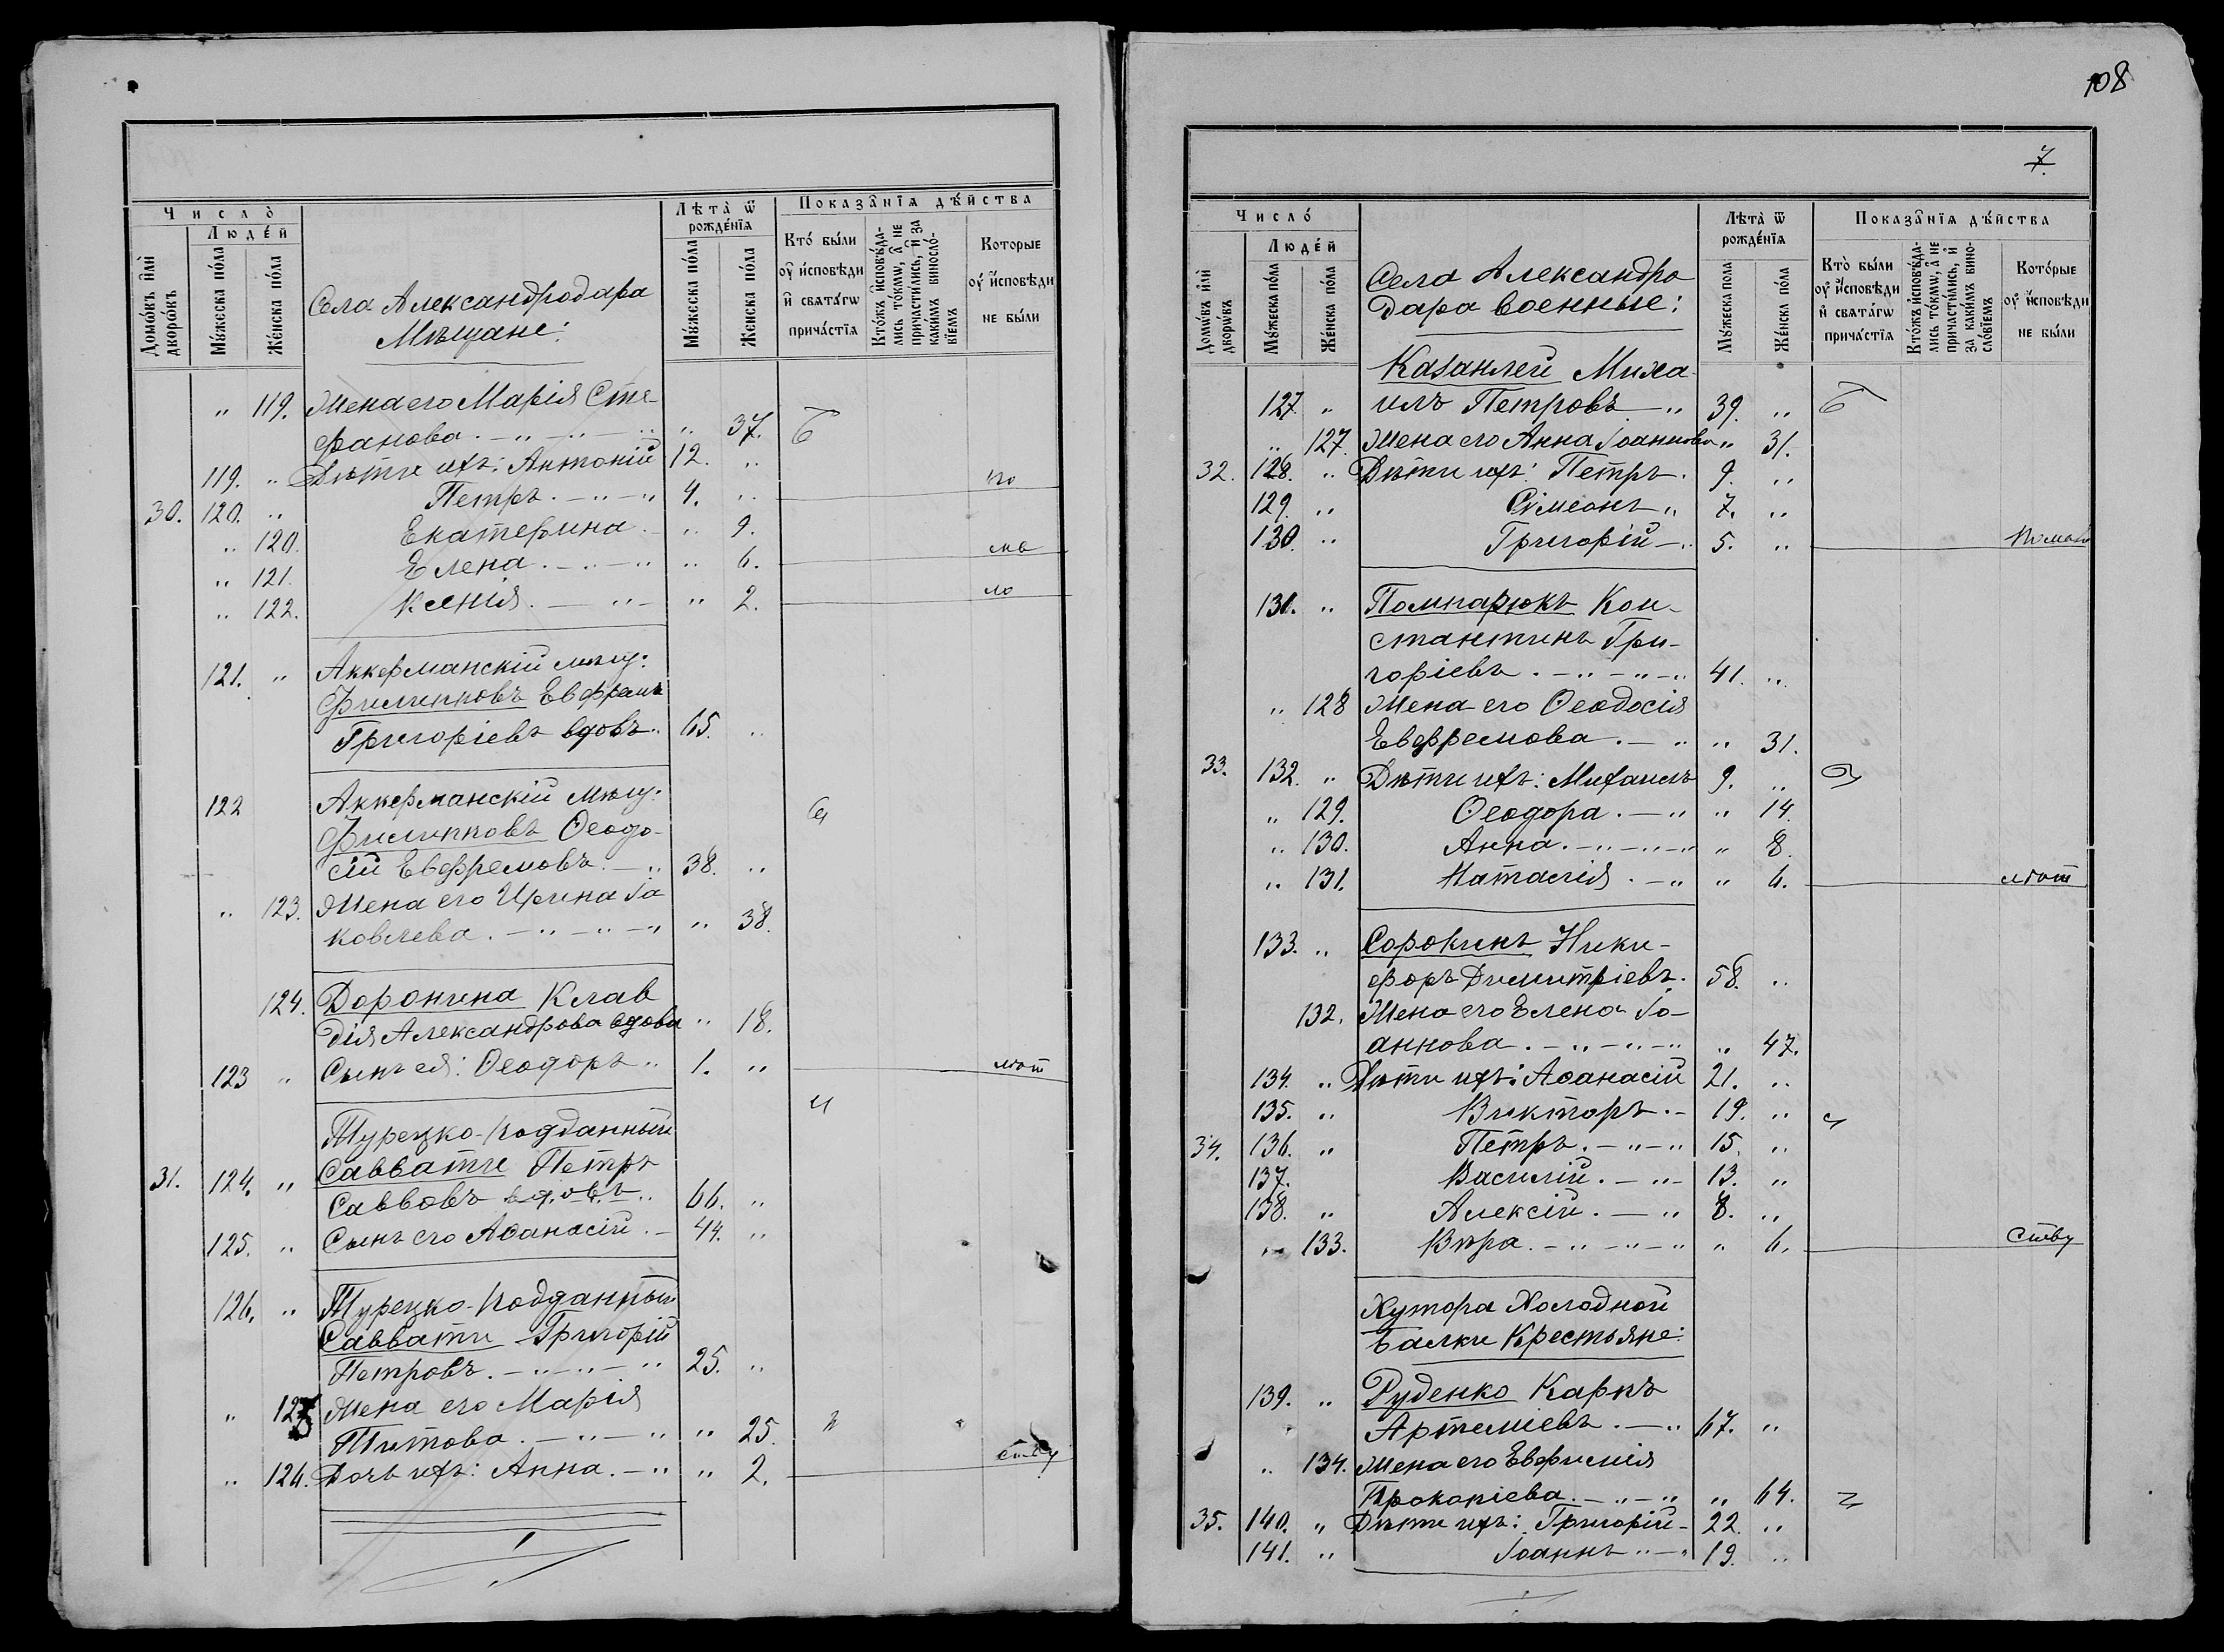 Число̀
Домо́въ и҆лѝ дворо́въ
Люде́й
Мꙋ́жеска по́ла
Же́нска по́ла
Села Александродара
Мѣщане:
Лѣта̀ ѿ рожде́нїѧ
Мꙋ́жеска по́ла
Же́нска по́ла
Показа̑нїѧ дѣ́йства
Кто̀ бы́ли ᲂу҆ и҆сповѣди и҆ свѧта́гѡ прича́стїѧ
Кто́жъ и҆сповѣ́дались то́кмѡ, а҆ не причасти́лись, и҆ за каки́мъ винослові́емъ
Которые ᲂу҆ и҆сповѣди не были
„ 119. Жена его Марія Сте-
фанова . - „ - „ - „ „ 37. Б
119. „ Дѣти ихъ: Антоній 12. „
30. 120. „ Петръ . - „ - „ 4. „ по
„ 120. Екатерина - „ 9.
„ 121. Елена . - „ - „ „ 6. ма
„ 122. Ксенія . - „ - „ 2. ло
121. „ Аккерманскій мѣщ:
Филипповъ Евфремъ
Григоріевъ вдовъ „ 65. „
122 Аккерманскій мѣщ:
Филипповъ Ѳеодо-
сій Евфремовъ . - „ 38. „
„ 123. Жена его Ирина Іа
ковлева . - „ - „ - „ „ 38.
124. Доронина Клав
дія Александрова вдова „ 18.
123 „ Сынъ ея: Ѳеодоръ „ 1. „ лѣт
Турецко-подданный
31. 124. „ Саввати Петръ
Саввовъ вдовъ „ 66. „
125. „ Сынъ его Аѳанасій . - 44. „
126. „ Турецко-подданный
Саввати Григорій
Петровъ . - „ - „ - „ 25. „
„ 125 Жена его Марія
Титова . - „ - „ „ 25.
„ 126. Дочь ихъ: Анна . - „ „ 2. ству
108
7.
Число́
Домѡ́въ и҆лѝ дворѡ́въ
Люде́й
Мꙋ́жеска пола
Же́нска по́ла
Села Александро
дара военные:
Лѣта̀ ѿ рожде́нїѧ
Мꙋ́жеска пола
Же́нска по́ла
Показа̑нїѧ дѣ́йства
Кто̀ бы́ли ᲂу҆ и҆сповѣди и҆ свѧта́гѡ прича́стїѧ
Кто́жъ и҆сповѣ́дались то́кмѡ, а҆ не причасти́лись, и҆ за каки́мъ винослові́емъ
Кото́рые ᲂу҆ и҆сповѣди не бы́ли
Казанлей Миха-
127. „ илъ Петровъ - „ 39. „ Б
„ 127. Жена его Анна Іоаннова „ 31.
32. 128. „ Дѣти ихъ: Петръ . 9. „
129. „ Сѵмеонъ „ 7. „
130. „ Григорій - „ 5. „ помало
131. „ Помпарюкъ Кон-
стантинъ Гри-
горіевъ . - „ - „ - „ 41. „
„ 128 Жена его Ѳеодосія
Евфремова . - „ „ 31.
33. 132. „ Дѣти ихъ: Михаилъ 9. „
„ 129. Ѳеодора . - „ „ 14.
„ 130. Анна . - „ - „ - „ „ 8.
„ 131. Наталія . - „ „ 6. лѣт
133. „ Сорокинъ Ники-
форъ Димитріевъ . 58. „
132. Жена его Елена Іо-
аннова . - „ - „ - „ „ 47.
134. „ Дѣти ихъ: Аѳанасій 21. „
135. „ Викторъ . - 19. „
34. 136. „ Петръ . - „ - „ 15. „
137. Василій . - „ - 13. „
138. „ Алексій . - „ 8. „
„ 133. Вѣра . - „ - „ - „ „ 6. ству
Хутора Холодной
Балки Крестьяне:
139. „ Руденко Карпъ
Артеміевъ . - „ 67. „
„ 134. Жена его Евфимія
Прокопіева . - „ - „ „ 64.
35. 140. „ Дѣти ихъ: Григорій - 22. „
141. „ Іоаннъ „ - „ 19. „